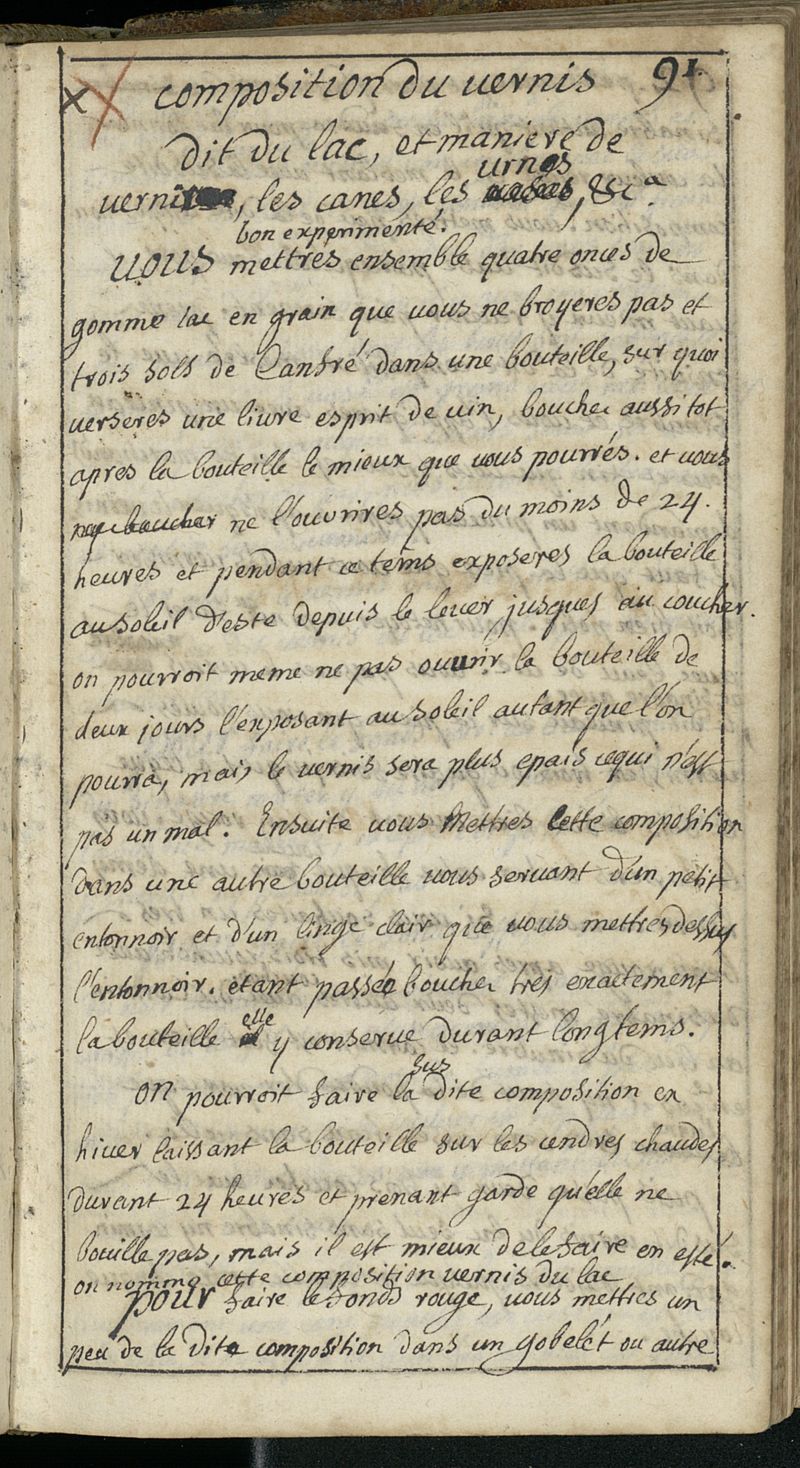 composition du vernis 91.
dit du lac, et maniere de
urnes
verni, les canes, les &ca.
bon experimenté.
vous mettres ensemble quatre onces de
gomme lac en grain que vous ne broyeres pas et
trois sols de Canfré dans une bouteille, sur quoi
verseres une livre esprit de vin, boucher aussi tot
apres la bouteille le mieux que vous pourrés. et vous
ne l'ouvrires pas du moins de 24.
heures et pendant ce tems exposeres la bouteille
au soleil d'esté depuis le lever jusques au coucher.
on pourroit meme ne pas ouvrir la bouteille de
deux jours l'exposant au soleil autant que l'on
pourra, mais le vernis sera plus epais ce qui n'est
pas un mal. Ensuite vous Mettres Cette composition
dans une autre bouteille vous servant d'un petit
entonnoir et d'un linge clair que vous mettres dessus
l'entonnoir. etant passée boucher tres exactement
elle
la bouteille y conserve durant longtems.
sus
on pourroit faire la dite composition en
hiver laissant la bouteille sur les cendres chaudes
durant 24 heures et prenant garde qu'elle ne
bouille pas, mais il est mieux de le faire en esté.
on nomme cette composition vernis du lac
pour faire le fonds rouge, vous mettres un
peu de la dite composition dans un gobelét ou autre